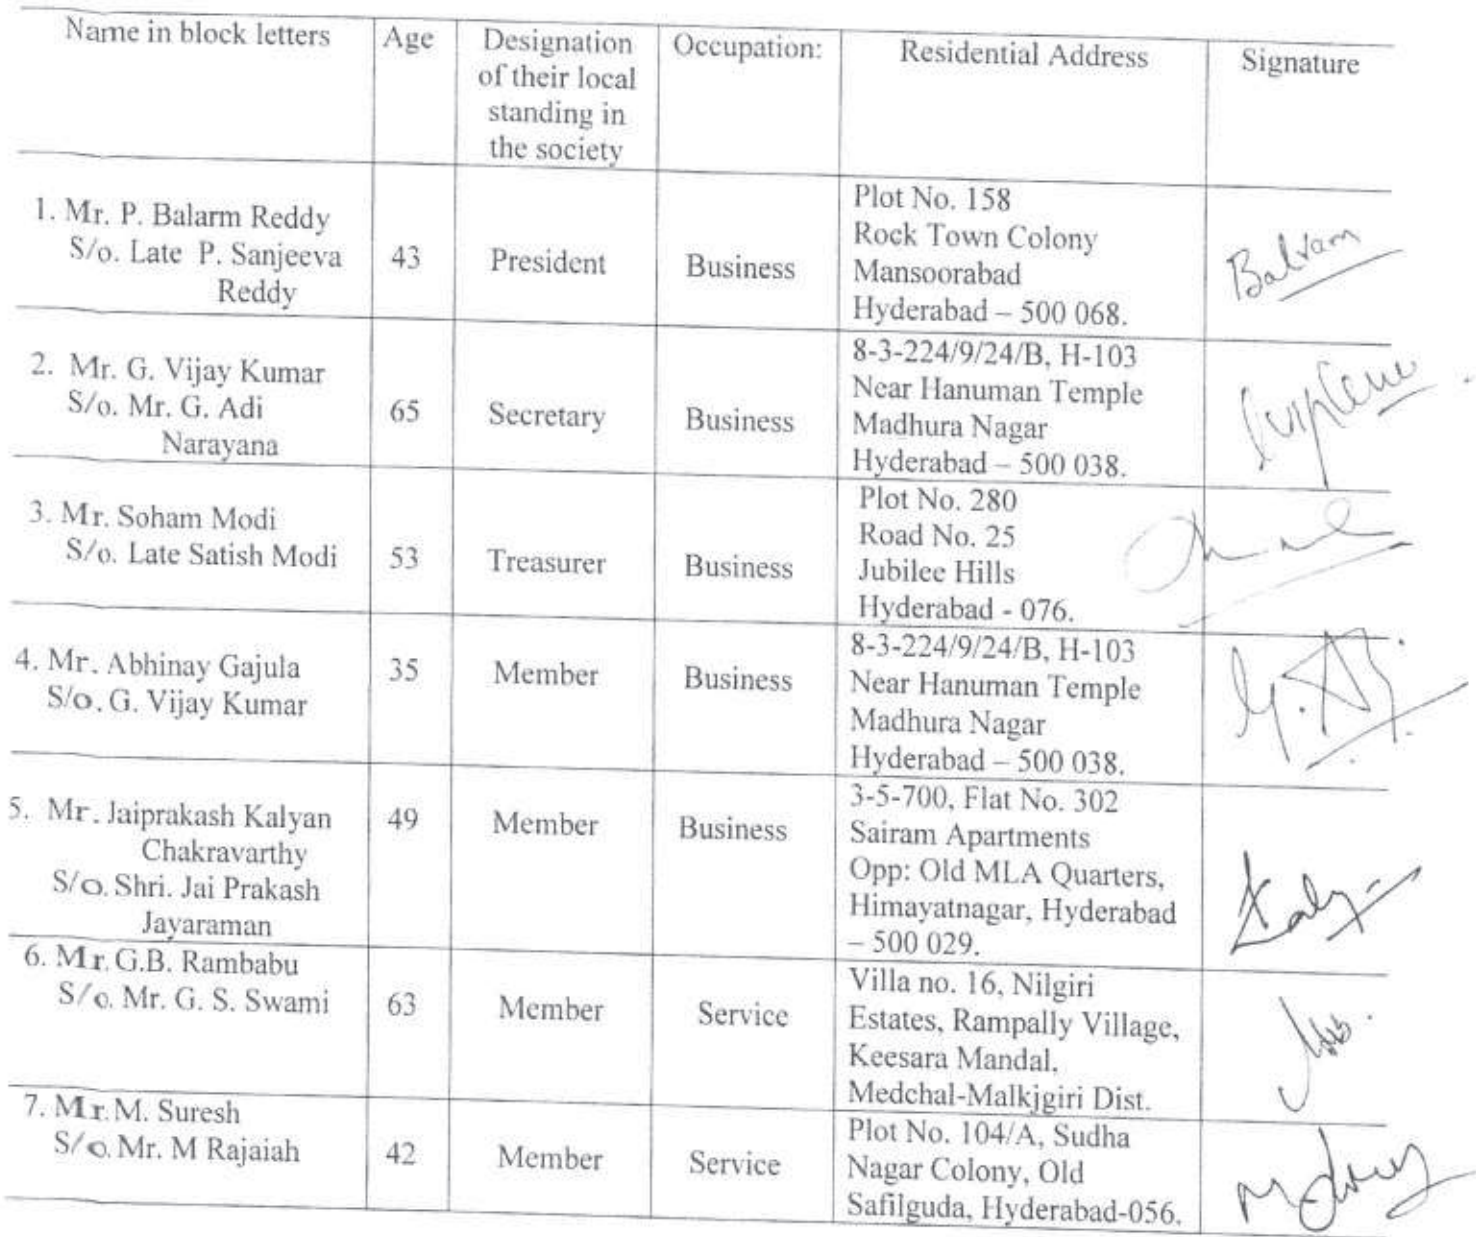 Name in block letters
Age
Designation
of their local
standing in
the society
Occupation:
Residential Address
Signature
1. Mr. P. Balarm Reddy
S/o. Late P. Sanjeeva
Reddy
43
President
Business
Plot No. 158
Rock Town Colony
Mansoorabad
Hyderabad – 500 068.
Balram
2. Mr. G. Vijay Kumar
S/o. Mr. G. Adi
Narayana
65
Secretary
Business
8-3-224/9/24/B, H-103
Near Hanuman Temple
Madhura Nagar
Hyderabad – 500 038.
3. Mr. Soham Modi
S/o. Late Satish Modi
53
Treasurer
Business
Plot No. 280
Road No. 25
Jubilee Hills
Hyderabad - 076.
4. Mr. Abhinay Gajula
S/o. G. Vijay Kumar
35
Member
Business
8-3-224/9/24/B, H-103
Near Hanuman Temple
Madhura Nagar
Hyderabad – 500 038.
5. Mr. Jaiprakash Kalyan
Chakravarthy
S/o. Shri. Jai Prakash
Jayaraman
49
Member
Business
3-5-700, Flat No. 302
Sairam Apartments
Opp: Old MLA Quarters,
Himayatnagar, Hyderabad
– 500 029.
6. Mr. G.B. Rambabu
S/o. Mr. G. S. Swami
63
Member
Service
Villa no. 16, Nilgiri
Estates, Rampally Village,
Keesara Mandal.
Medchal-Malkjgiri Dist.
7. Mr. M. Suresh
S/o. Mr. M Rajaiah
42
Member
Service
Plot No. 104/A, Sudha
Nagar Colony, Old
Safilguda, Hyderabad-056.